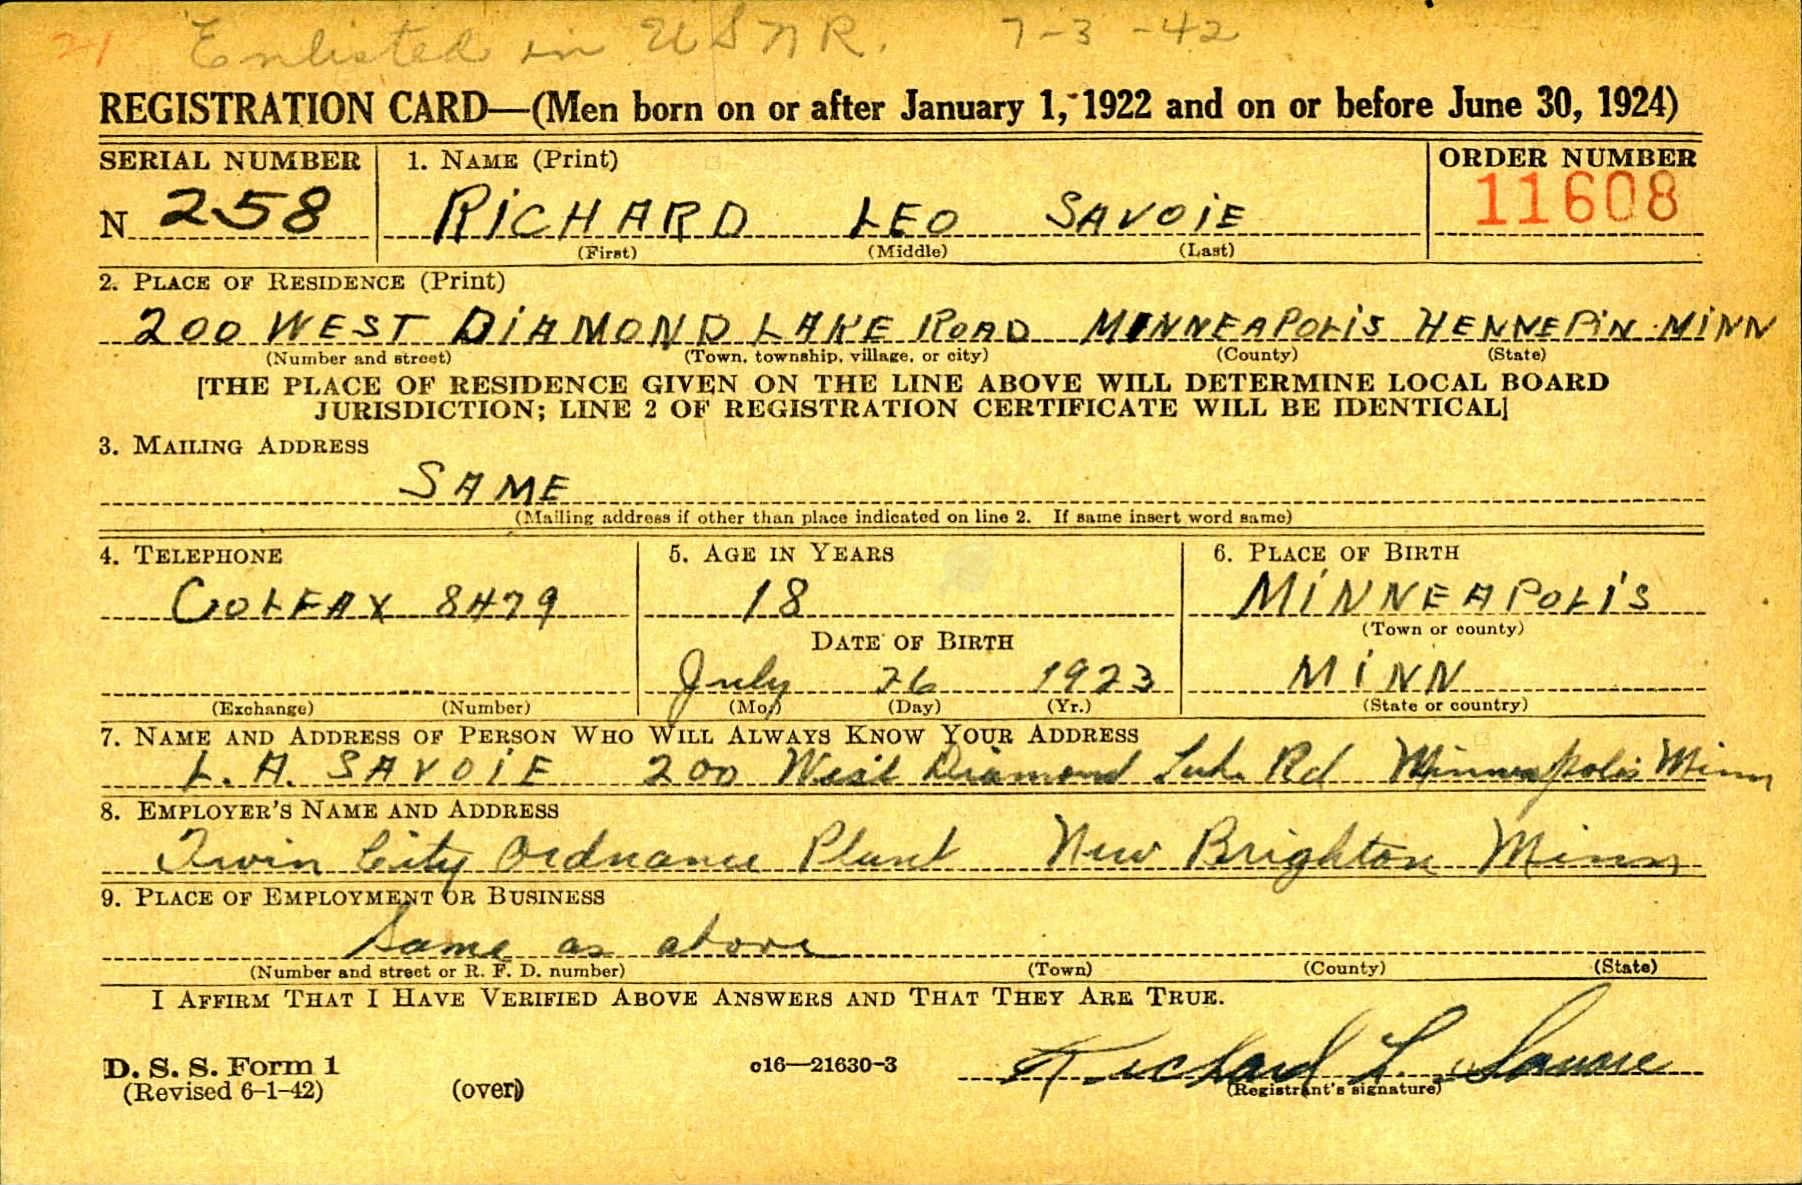 21 Enlisted in USNR. 7-3-42
REGISTRATION CARD—(Men born on or after January 1, 1922 and on or before June 30, 1924)
SERIAL NUMBER 1. NAME (Print) ORDER NUMBER
N 258 RICHARD LEO SAVOIE 11608
(First) (Middle) (Last)
2. PLACE OF RESIDENCE (Print)
200 WEST DIAMOND LAKE ROAD MINNEAPOLIS HENNEPIN MINN
(Number and street) (Town, township, village, or city) (County) (State)
[THE PLACE OF RESIDENCE GIVEN ON THE LINE ABOVE WILL DETERMINE LOCAL BOARD
JURISDICTION; LINE 2 OF REGISTRATION CERTIFICATE WILL BE IDENTICAL]
3. MAILING ADDRESS
SAME
(Mailing address if other than place indicated on line 2. If same insert word same)
4. TELEPHONE 5. AGE IN YEARS 6. PLACE OF BIRTH
COLFAX 8479 18 MINNEAPOLIS
(Town or county)
DATE OF BIRTH
July 26 1923 MINN
(Exchange) (Number) (Mo.) (Day) (Yr.) (State or country)
7. NAME AND ADDRESS OF PERSON WHO WILL ALWAYS KNOW YOUR ADDRESS
L. A. SAVOIE 200 West Diamond Lake Rd Minneapolis Minn
8. EMPLOYER'S NAME AND ADDRESS
Twin City Ordnance Plant New Brighton Minn
9. PLACE OF EMPLOYMENT OR BUSINESS
Same as above
(Number and street or R. F. D. number) (Town) (County) (State)
I AFFIRM THAT I HAVE VERIFIED ABOVE ANSWERS AND THAT THEY ARE TRUE.
D. S. S. Form 1
(Revised 6-1-42) (over) c16—21630-3 Richard L. Savoie
(Registrant's signature)